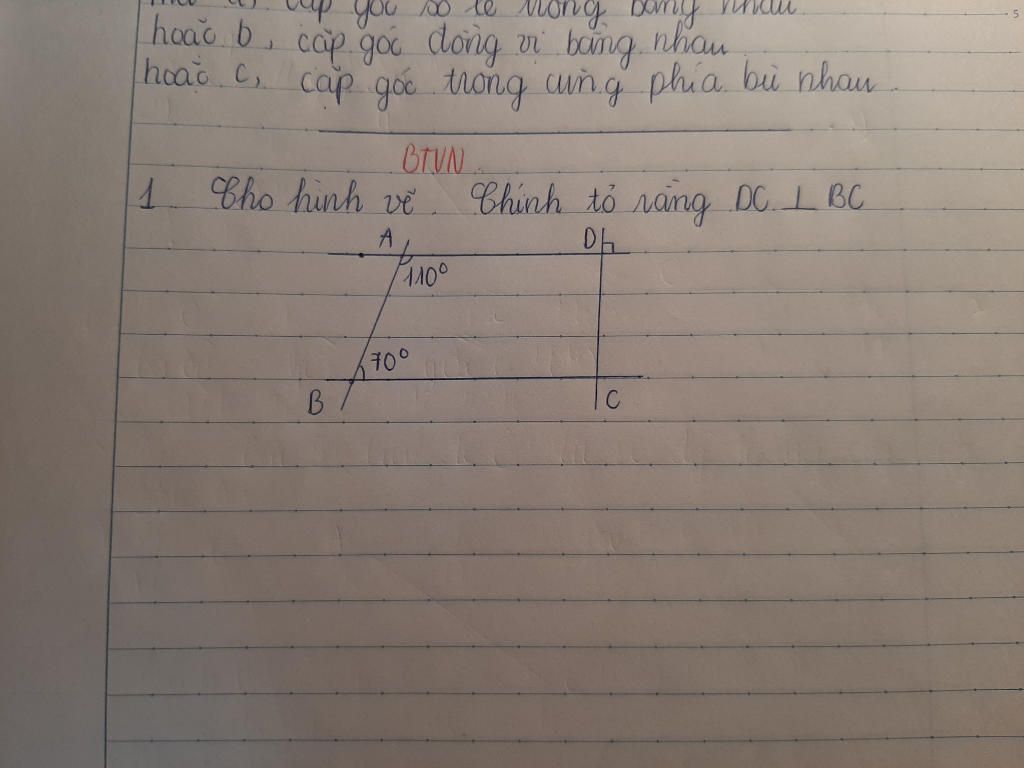 cặp góc so le trong bằng nhau
hoặc b, cặp góc đồng vị bằng nhau
hoặc c, cặp góc trong cùng phía bù nhau.
BTVN
1 Cho hình vẽ. Chính tỏ rằng DC ⊥ BC
A D
110°
70°
B C